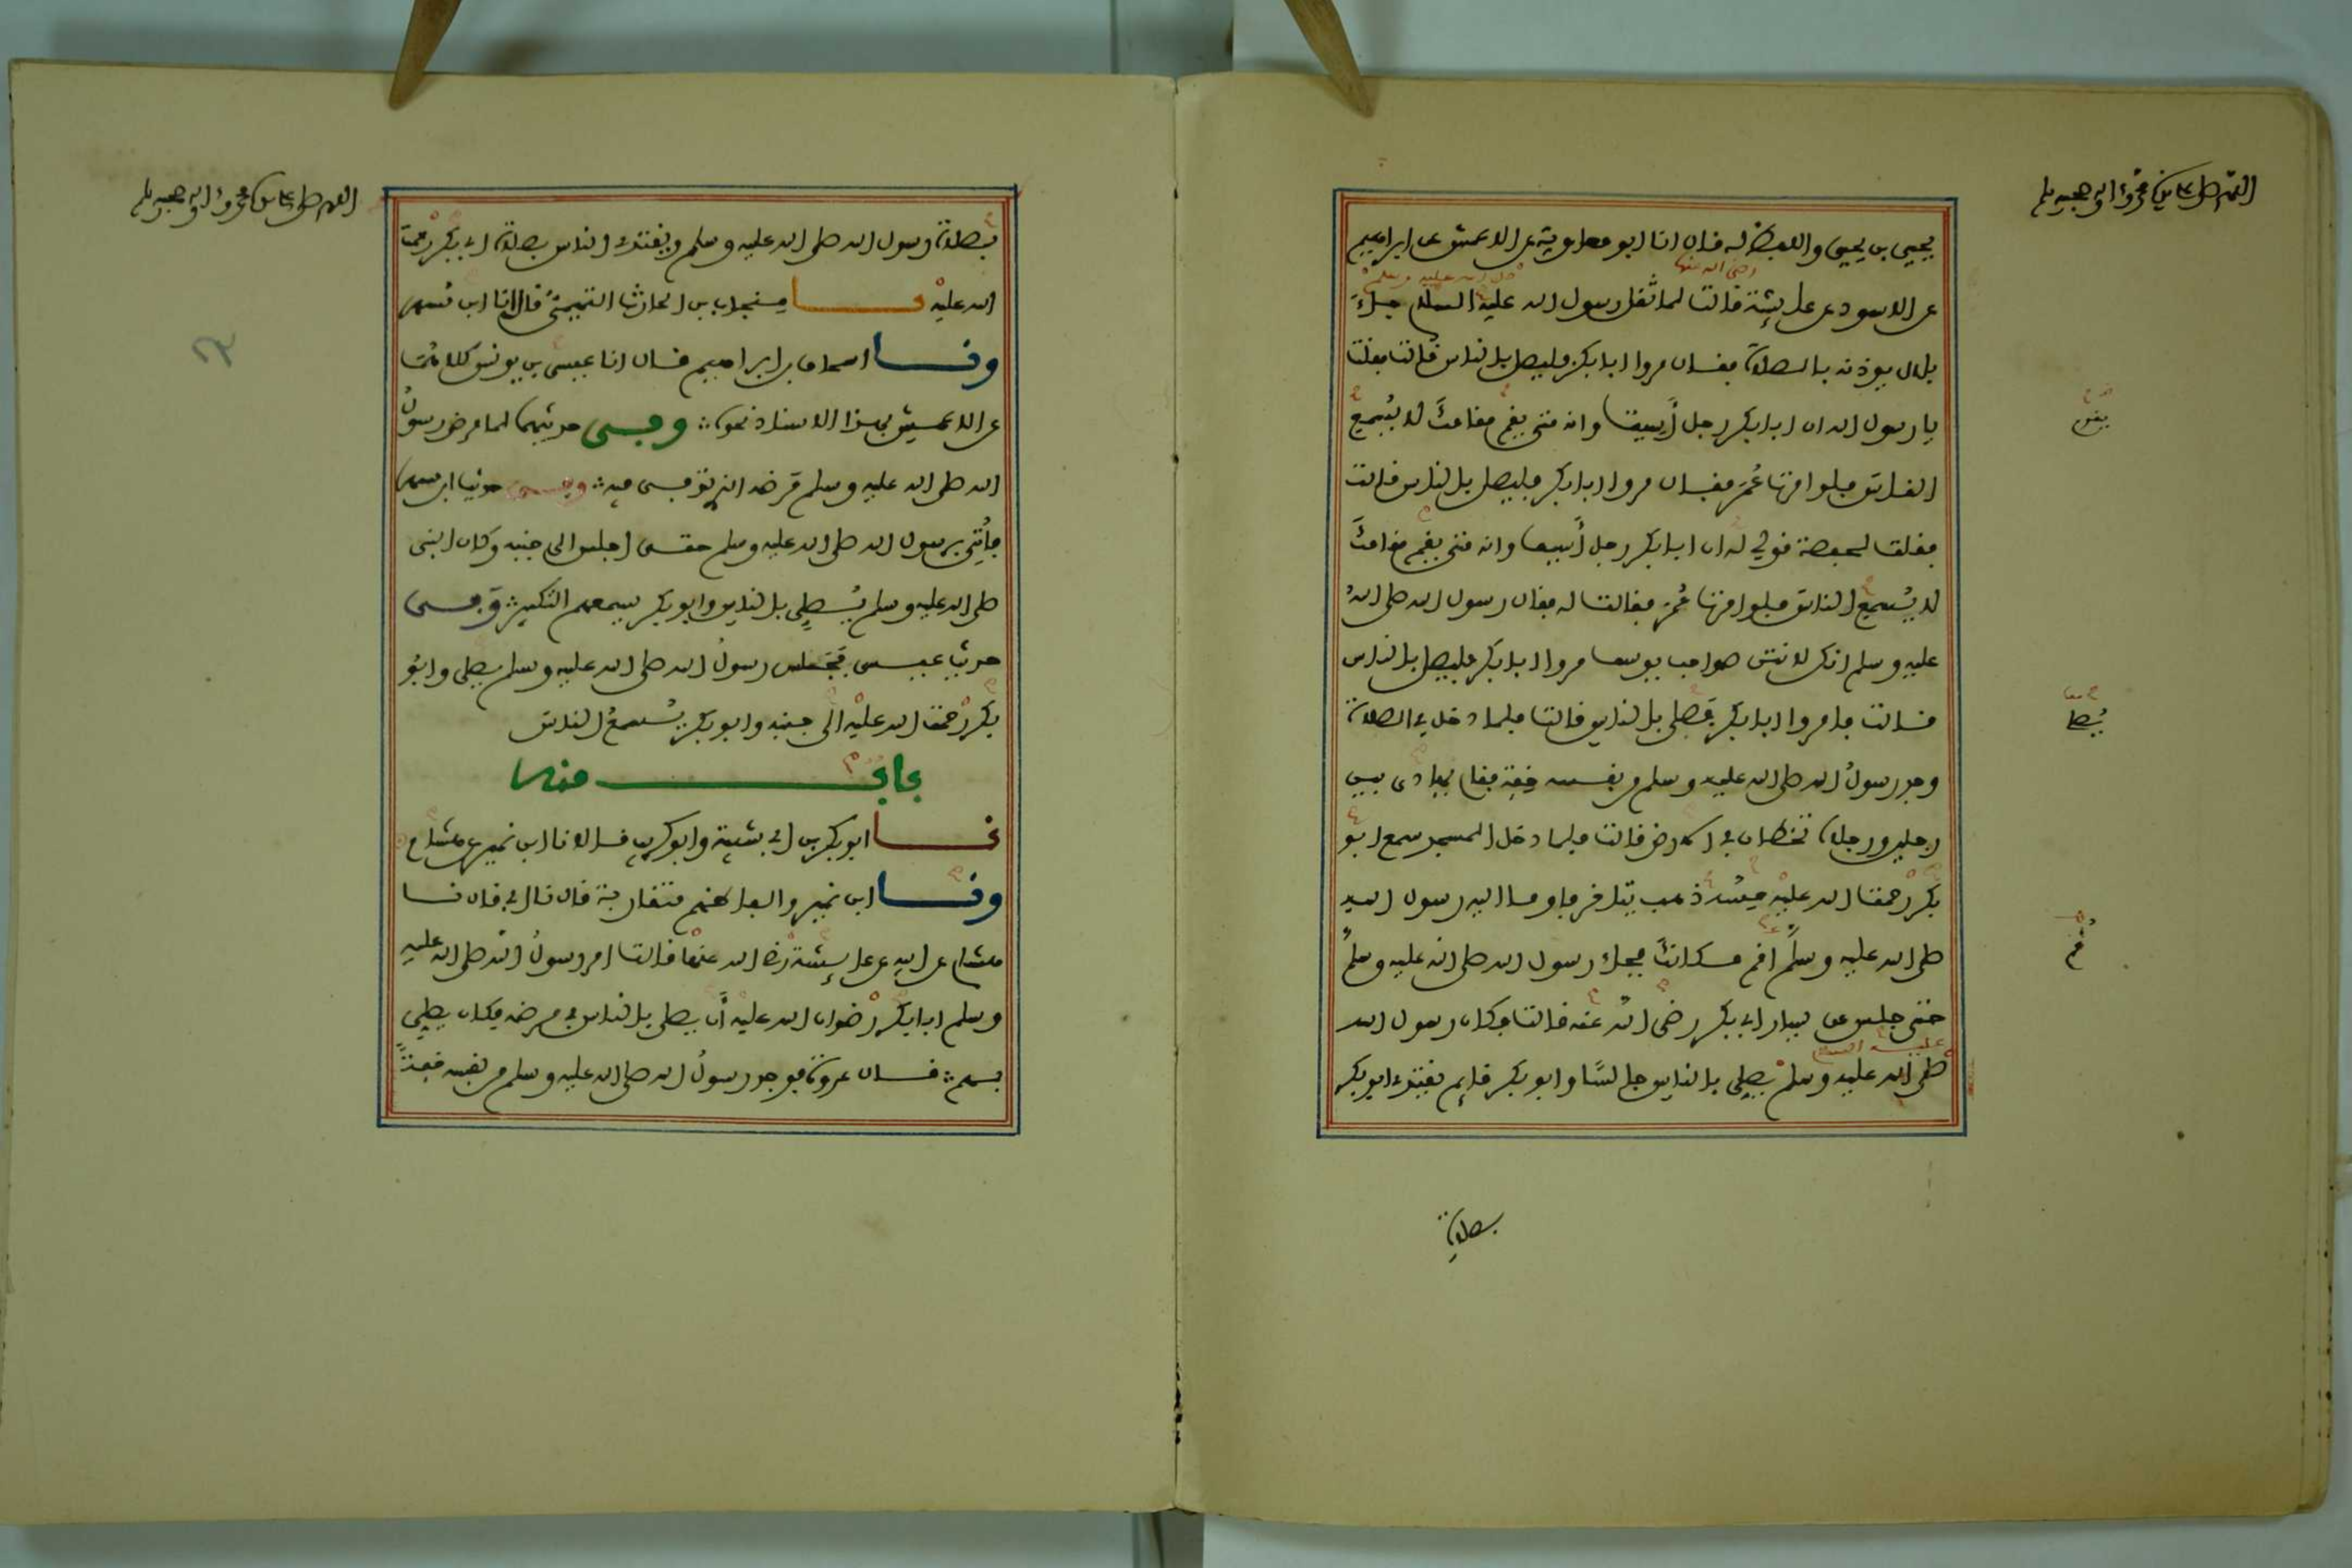 اللهم صل على سيدنا محمد وءاله وصحبه وسلم
يحيى بن يحيى واللفظ له قال انا ابو معاوية عن الاعمش عن ابراهيم
رضى الله عنها صلى الله عليه وسلم
عن الاسود عن عايشة قالت لما ثقل رسول الله عليه السلام جاء
بلال يوذنه بالصلاة فقال مروا ابا بكر فليصل بالناس قالت فقلت
يا رسول الله ان ابا بكر رجل أسيف وانه متى يقم مقامك لا يسمع
الناس فلو امرت عمر فقال مروا ابا بكر فليصل بالناس قالت
فقلت لحفصة قولي له ان ابا بكر رجل أسيف وانه متى يقم مقامك
لا يسمع الناس فلو امرت عمر فقالت له فقال رسول الله صلى الله
عليه وسلم انكن لانتن صواحب يوسف مروا ابا بكر فليصل بالناس
قالت فامروا ابا بكر فصلى بالناس قالت فلما دخل في الصلاة
وجد رسول الله صلى الله عليه وسلم من نفسه خفة فقام يهادى بين
رجلين ورجلاه تخطان في الارض قالت فلما دخل المسجد سمع ابو
بكر رحمت الله عليه حسه ذهب يتاخر فاومأ اليه رسول الله
صلى الله عليه وسلم اقم مكانك فجاء رسول الله صلى الله عليه وسلم
حتى جلس عن يسار ابي بكر رضى الله عنه قالت فكان رسول الله
عليه السلام
صلى الله عليه وسلم يصلى بالناس جالسا وابو بكر قايم يقتدي ابو بكر
يقوم
يصلي
قم
بصلاة
اللهم صل على سيدنا محمد وءاله وصحبه وسلم
بصلاة رسول الله صلى الله عليه وسلم ويقتدي الناس بصلاة ابي بكر رحمت
الله عليه نا منجاب بن الحارث التميمي قال انا ابن مسهر
ونا اسحاق بن ابراهيم قال انا عيسى بن يونس كلاهما
عن الاعمش بهذا الاسناد نحوه وفى حديثهما لما مرض رسول
الله صلى الله عليه وسلم مرضه الذي توفى فيه وفى حديث ابن مسهر
فأتي برسول الله صلى الله عليه وسلم حتى اجلس الى جنبه وكان النبى
صلى الله عليه وسلم يصلى بالناس وابو بكر يسمعهم التكبير وفى
حديث عيسى فجلس رسول الله صلى الله عليه وسلم يصلى وابو
بكر رحمت الله عليه الى جنبه وابو بكر يسمع الناس
باب منه
نا ابو بكر بن ابي شيبة وابو كريب قالا نا ابن نمير عن هشام ح
ونا ابن نمير والفاظهم متقاربة قال نا ابي قال نا
هشام عن ابيه عن عايشة رضى الله عنها قالت امر رسول الله صلى الله عليه
وسلم ابا بكر رضوان الله عليه أن يصلى بالناس في مرضه فكان يصلى
بهم قال عروة فوجد رسول الله صلى الله عليه وسلم من نفسه خفة